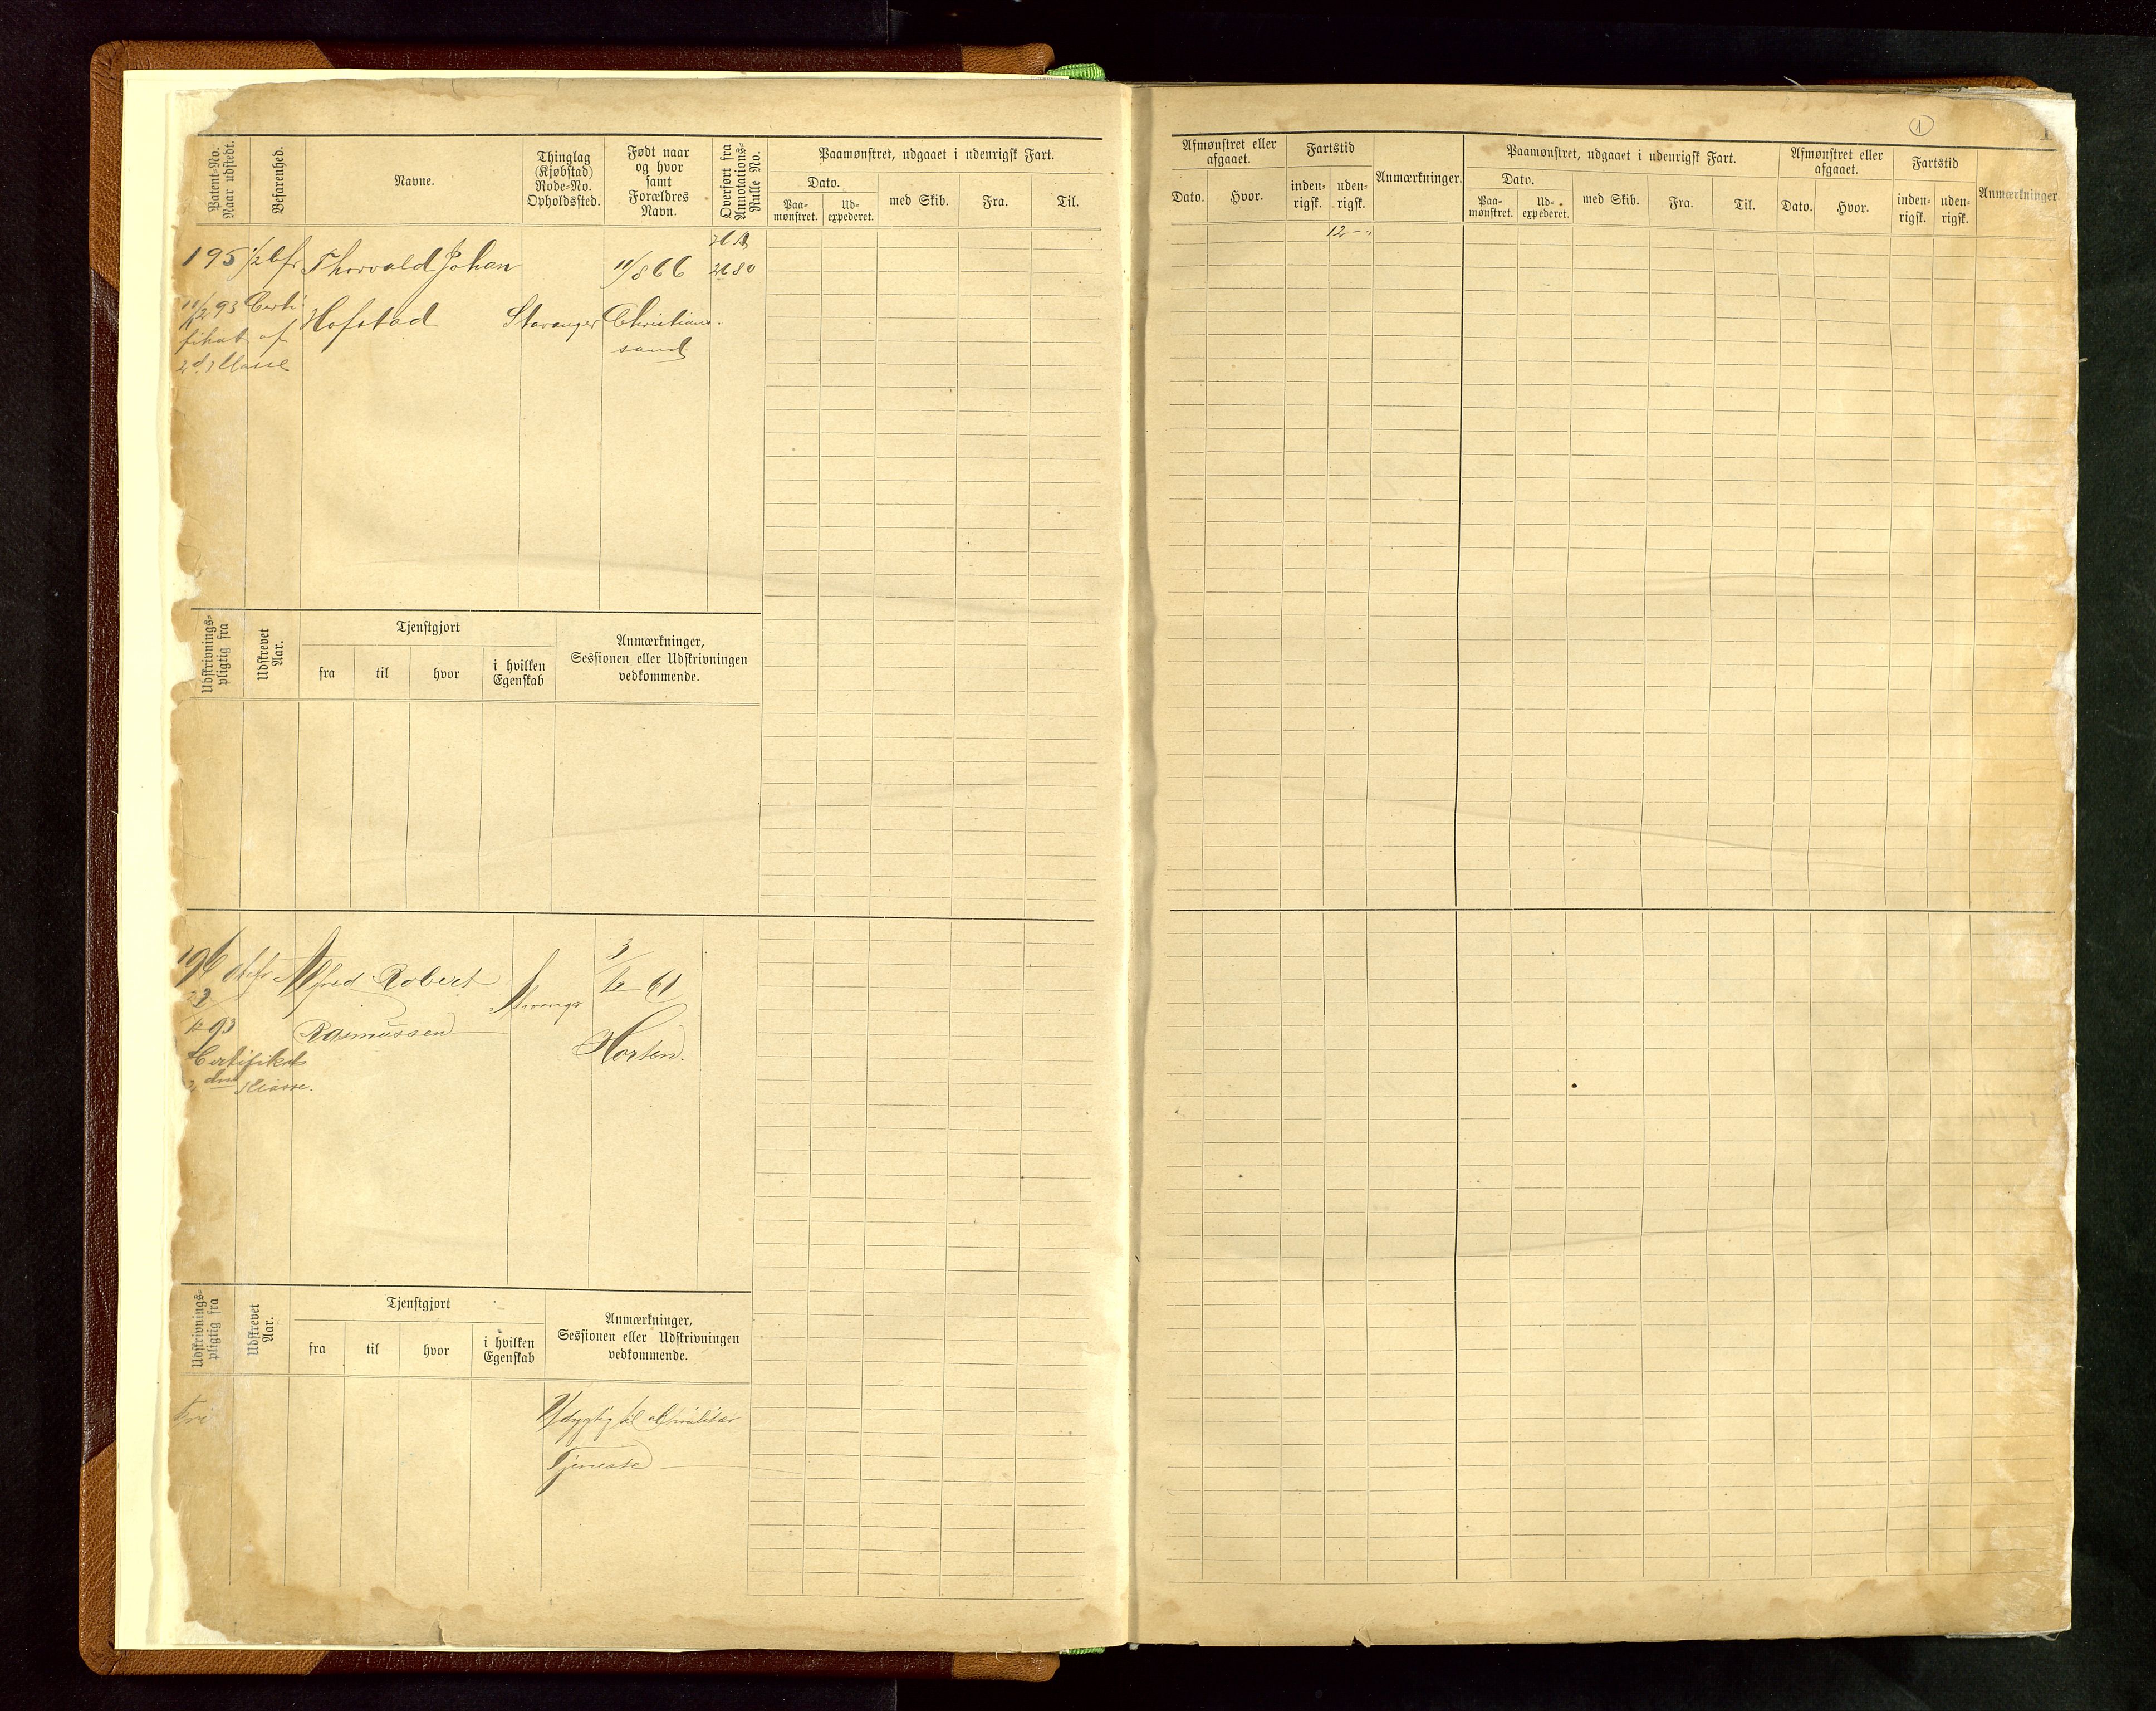 Patent-No.
Naar udstedt.
Befarenhed.
Navne.
Thinglag
(Kjøbstad)
Rode-No.
Opholdssted.
Født naar
og hvor
samt
Forældres
Navn.
Overført fra
Annotations-
Rulle No.
Paamønstret, udgaaet i udenrigsk Fart.
Dato.
Paa-
mønstret.
Ud-
expederet.
med Skib.
Fra.
Til.
195 ½ bfr Thorvald Johan
11/8 66
2680
11/2 93 Certi-
Hofstad
Stavanger
Christian-
fikat af
sand
2den Classe
Udskrivnings-
pligtig fra
Udskrevet
Aar.
Tjenstgjort
fra
til
hvor
i hvilken
Egenskab
Anmærkninger,
Sessionen eller Udskrivningen
vedkommende.
196
Alfred Robert
Stavanger
3/6 61
93
Rasmussen
Horten.
Certifikat
2den Klasse.
Udskrivnings-
pligtig fra
Udskrevet
Aar.
Tjenstgjort
fra
til
hvor
i hvilken
Egenskab
Anmærkninger,
Sessionen eller Udskrivningen
vedkommende.
Fri
Udygtig til al militær
Tjeneste
1
Afmønstret eller
afgaaet.
Dato.
Hvor.
Fartstid
inden-
rigsk.
uden-
rigsk.
Anmærkninger.
Paamønstret, udgaaet i udenrigsk Fart.
Dato.
Paa-
mønstret.
Ud-
expederet.
med Skib.
Fra.
Til.
Afmønstret eller
afgaaet.
Dato.
Hvor.
Fartstid
inden-
rigsk.
uden-
rigsk.
Anmærkninger.
12 - "